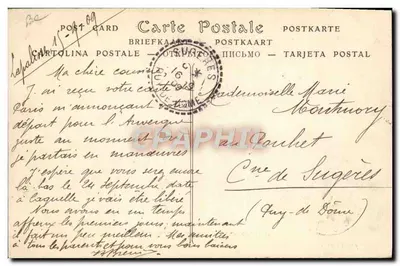 POST CARD Carte Postale POSTKARTE
BRIEFKAART POSTKAART
CARTOLINA POSTALE ПИСЬМО TARJETA POSTAL
SUGERES
DOME
Ma chère cousine
J'ai reçu votre carte de
Paris m'annonçant
départ pour l'Auvergne
juste au moment où
je partais en manœuvres
J'espère que vous serez encore
là bas le 24 Septembre date
à laquelle je vais être libéré
Nous avons eu un temps
affreux les premiers jours, maintenant
il fait un peu meilleur. Mes amitiés
à tous les parents et pour vous bons baisers
Mademoiselle Marie
au Bouchet
Cne de Sugères
(Puy-de-Dôme)
PRC